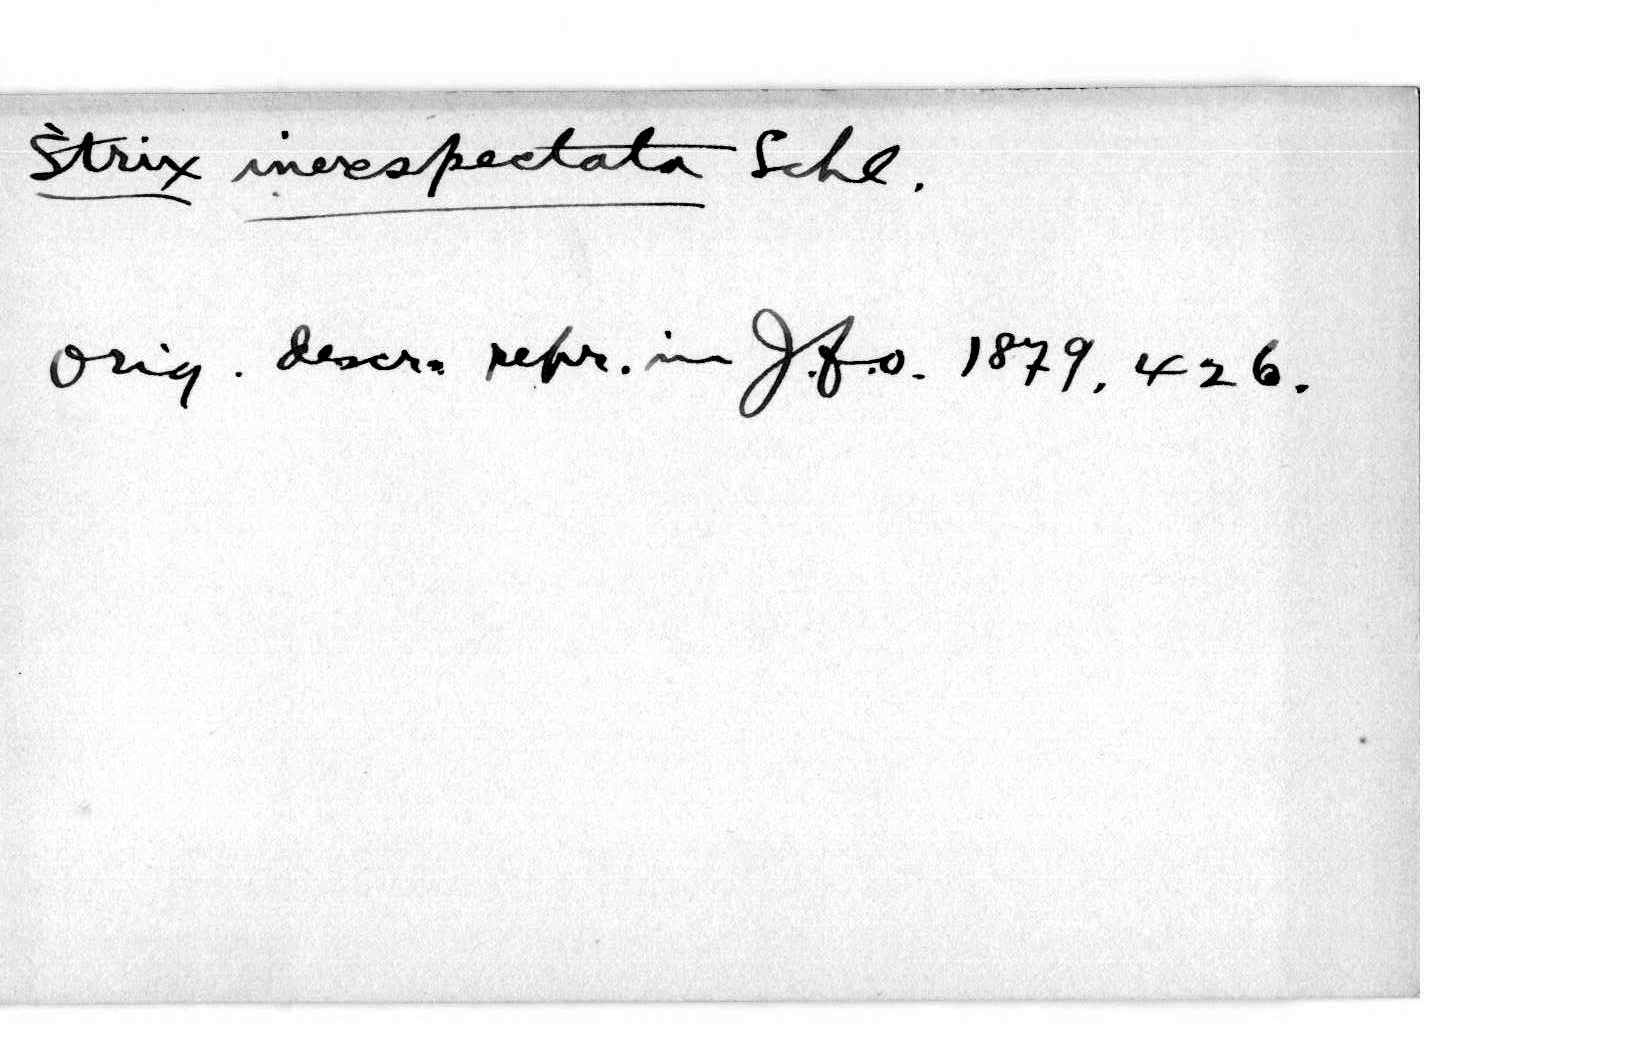 Strix inexspectata Schl.
Orig. descr. repr. in J.f.o. 1879, 426.